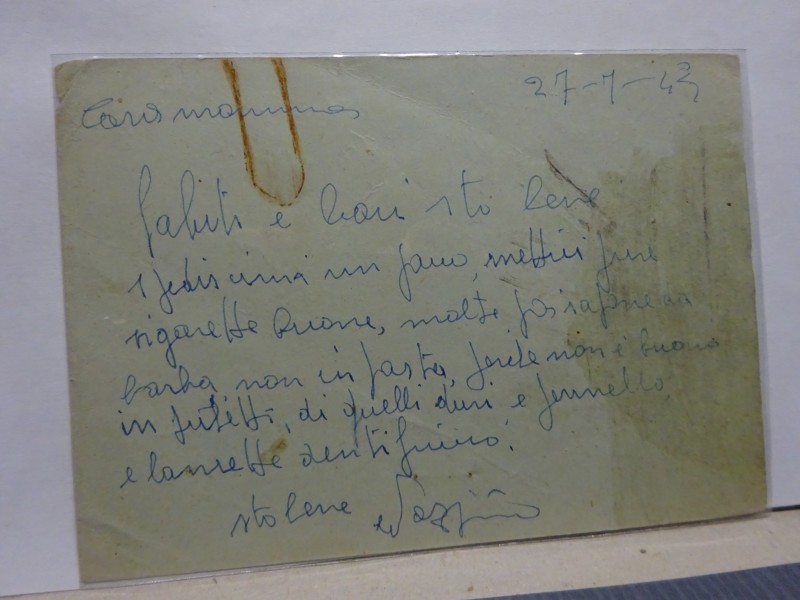 27-1-43
Cara mamma
Saluti e baci sto bene
spediscimi un pacco, mettici pure
sigarette buone, molte, poi sapone da
barba, non in pasta, perché non è buono
in tubetti, di quelli duri e pennello,
e lamette dentifricio.
sto bene